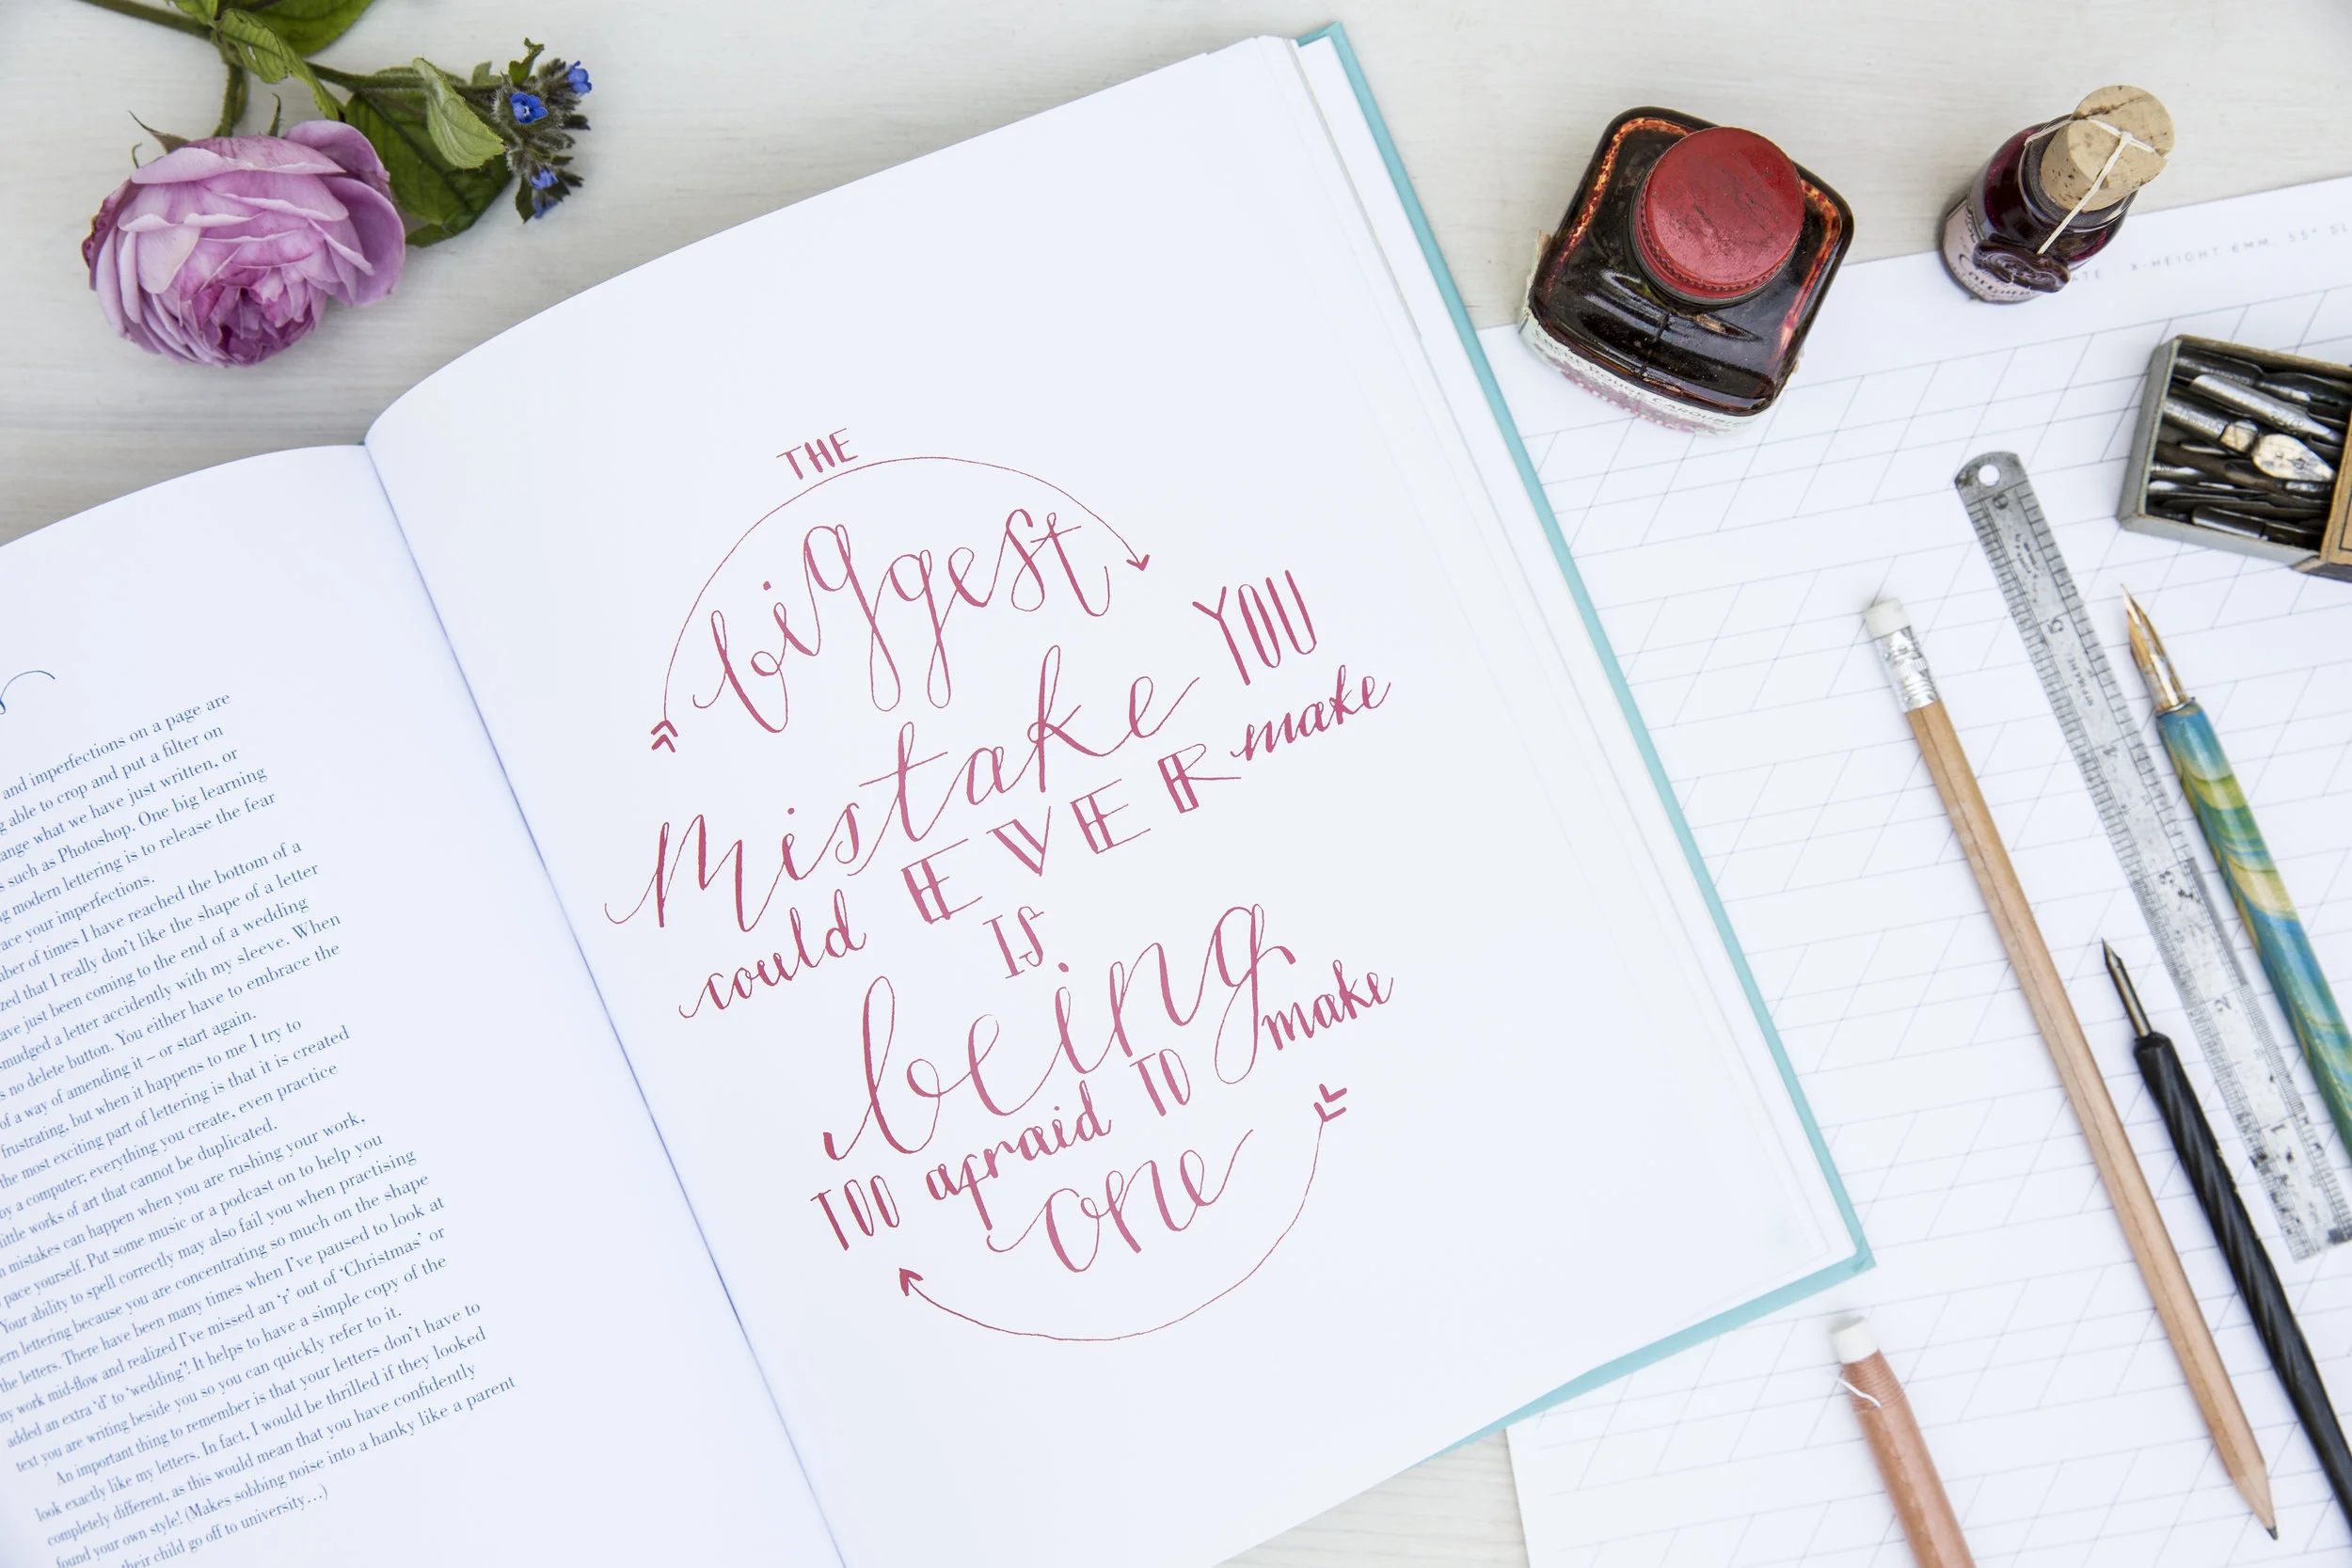 and imperfections on a page are
able to crop and put a filter on
what we have just written, or
such as Photoshop. One big learning
modern lettering is to release the fear
your imperfections.
of times I have reached the bottom of a
that I really don't like the shape of a letter
just been coming to the end of a wedding
smudged a letter accidently with my sleeve. When
no delete button. You either have to embrace the
of a way of amending it – or start again.
frustrating, but when it happens to me I try to
the most exciting part of lettering is that it is created
by a computer; everything you create, even practice
little works of art that cannot be duplicated.
mistakes can happen when you are rushing your work,
pace yourself. Put some music or a podcast on to help you
Your ability to spell correctly may also fail you when practising
lettering because you are concentrating so much on the shape
the letters. There have been many times when I've paused to look at
my work mid-flow and realized I've missed an 'r' out of 'Christmas' or
added an extra 'd' to 'wedding'! It helps to have a simple copy of the
text you are writing beside you so you can quickly refer to it.
An important thing to remember is that your letters don't have to
look exactly like my letters. In fact, I would be thrilled if they looked
completely different, as this would mean that you have confidently
found your own style! (Makes sobbing noise into a hanky like a parent
their child go off to university…)
THE
biggest
mistake YOU
could EVER make
IS
being
TOO afraid TO make
one
X-HEIGHT 6MM, 55°
6
5
4
3
2
1